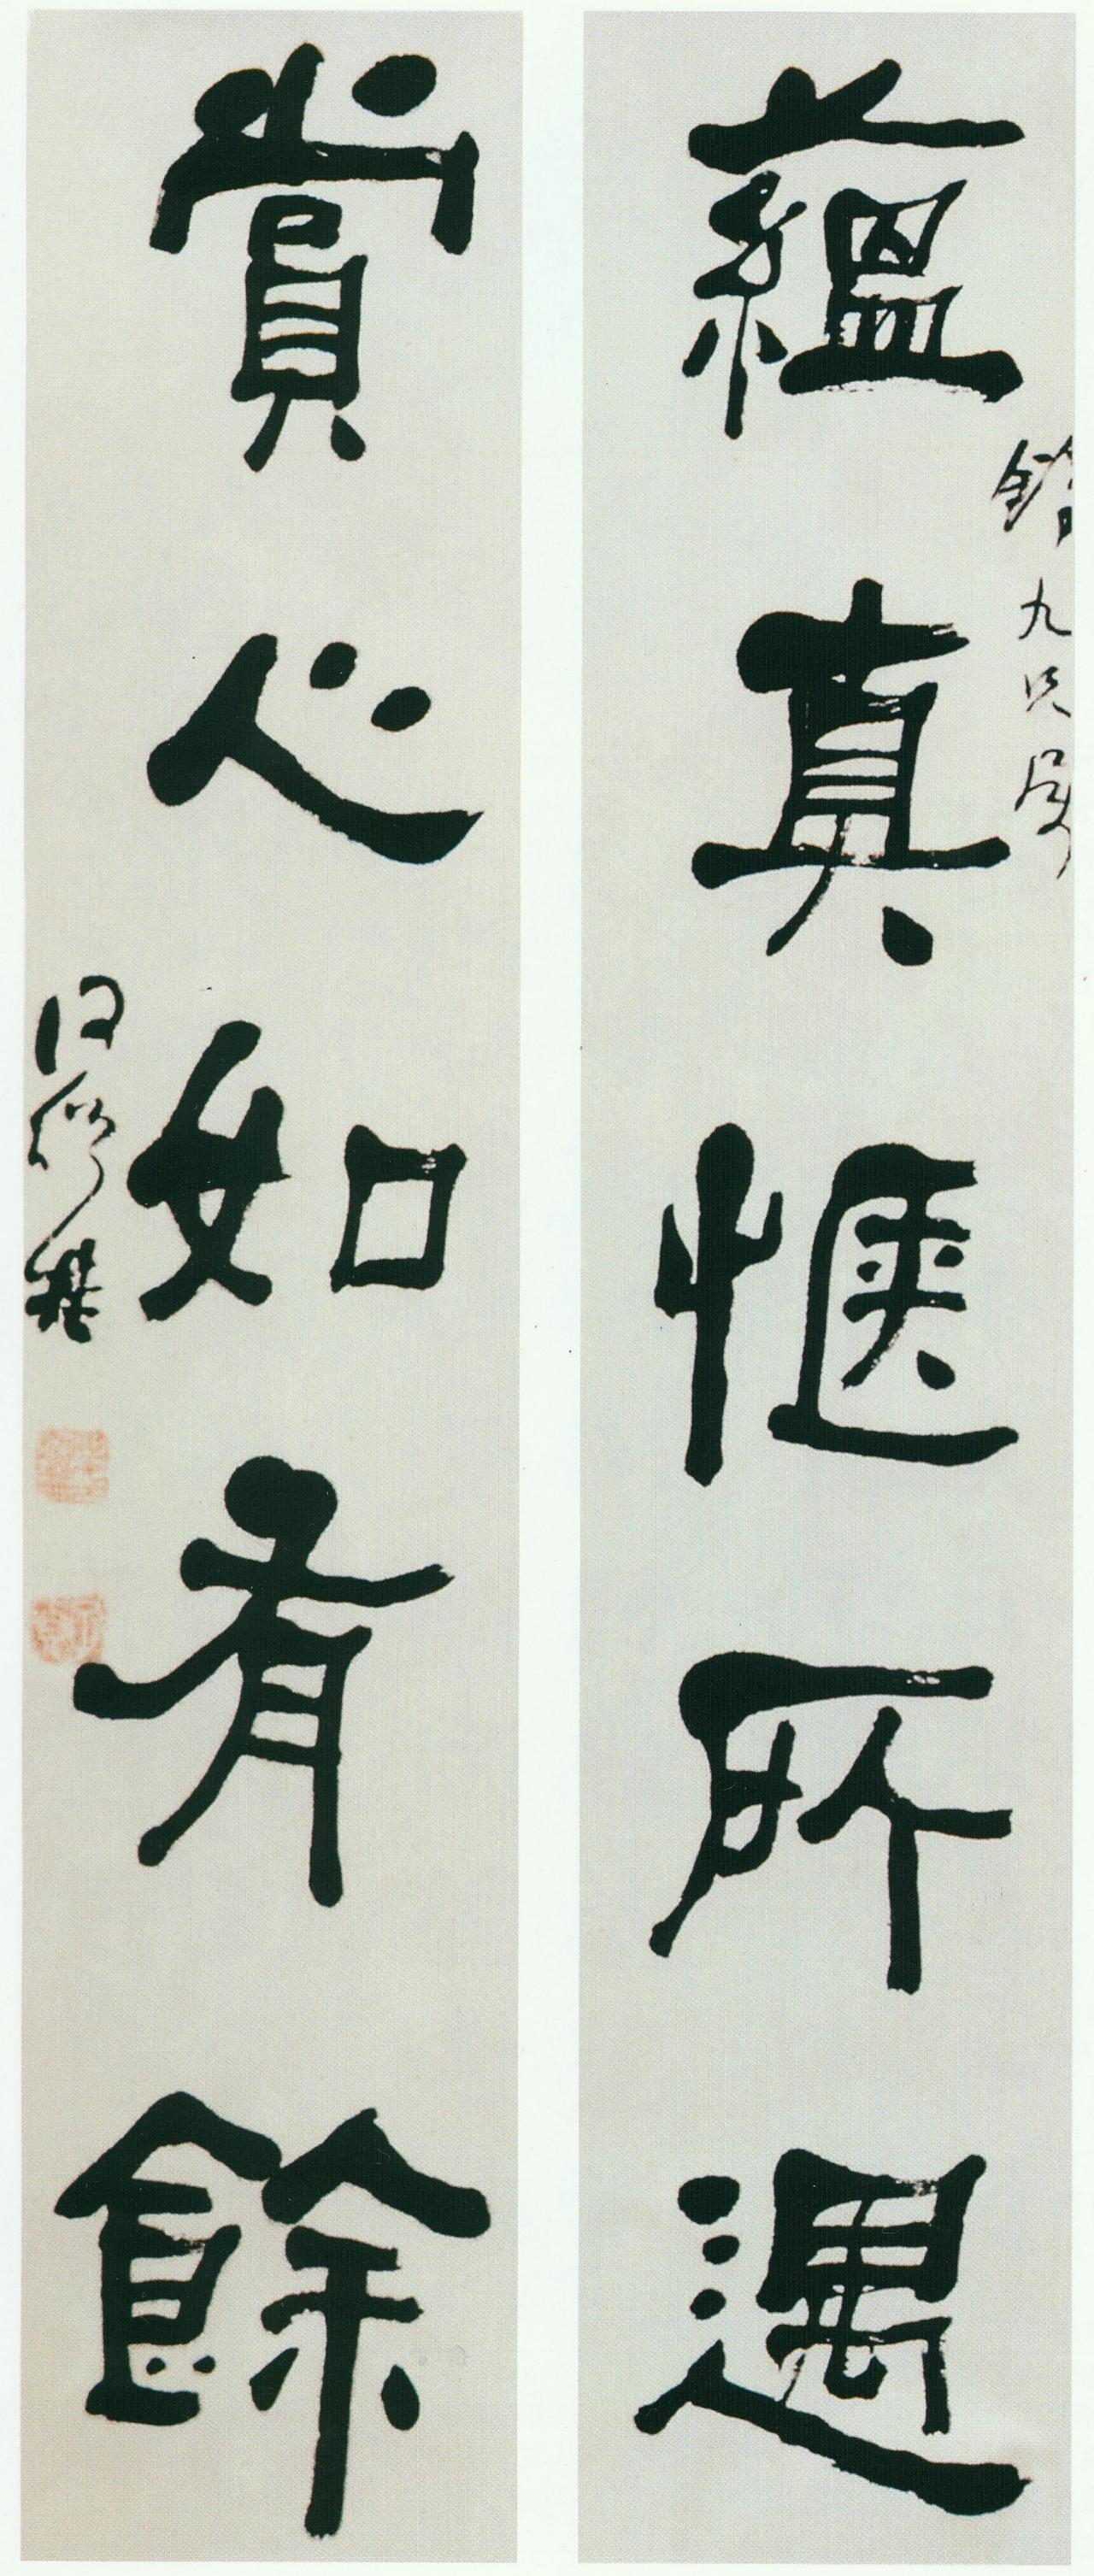 蘊真愜所遇
九兄屬
賞心如有餘
何紹基